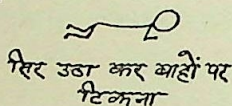 सिर उठा कर बाहों पर
टिकना